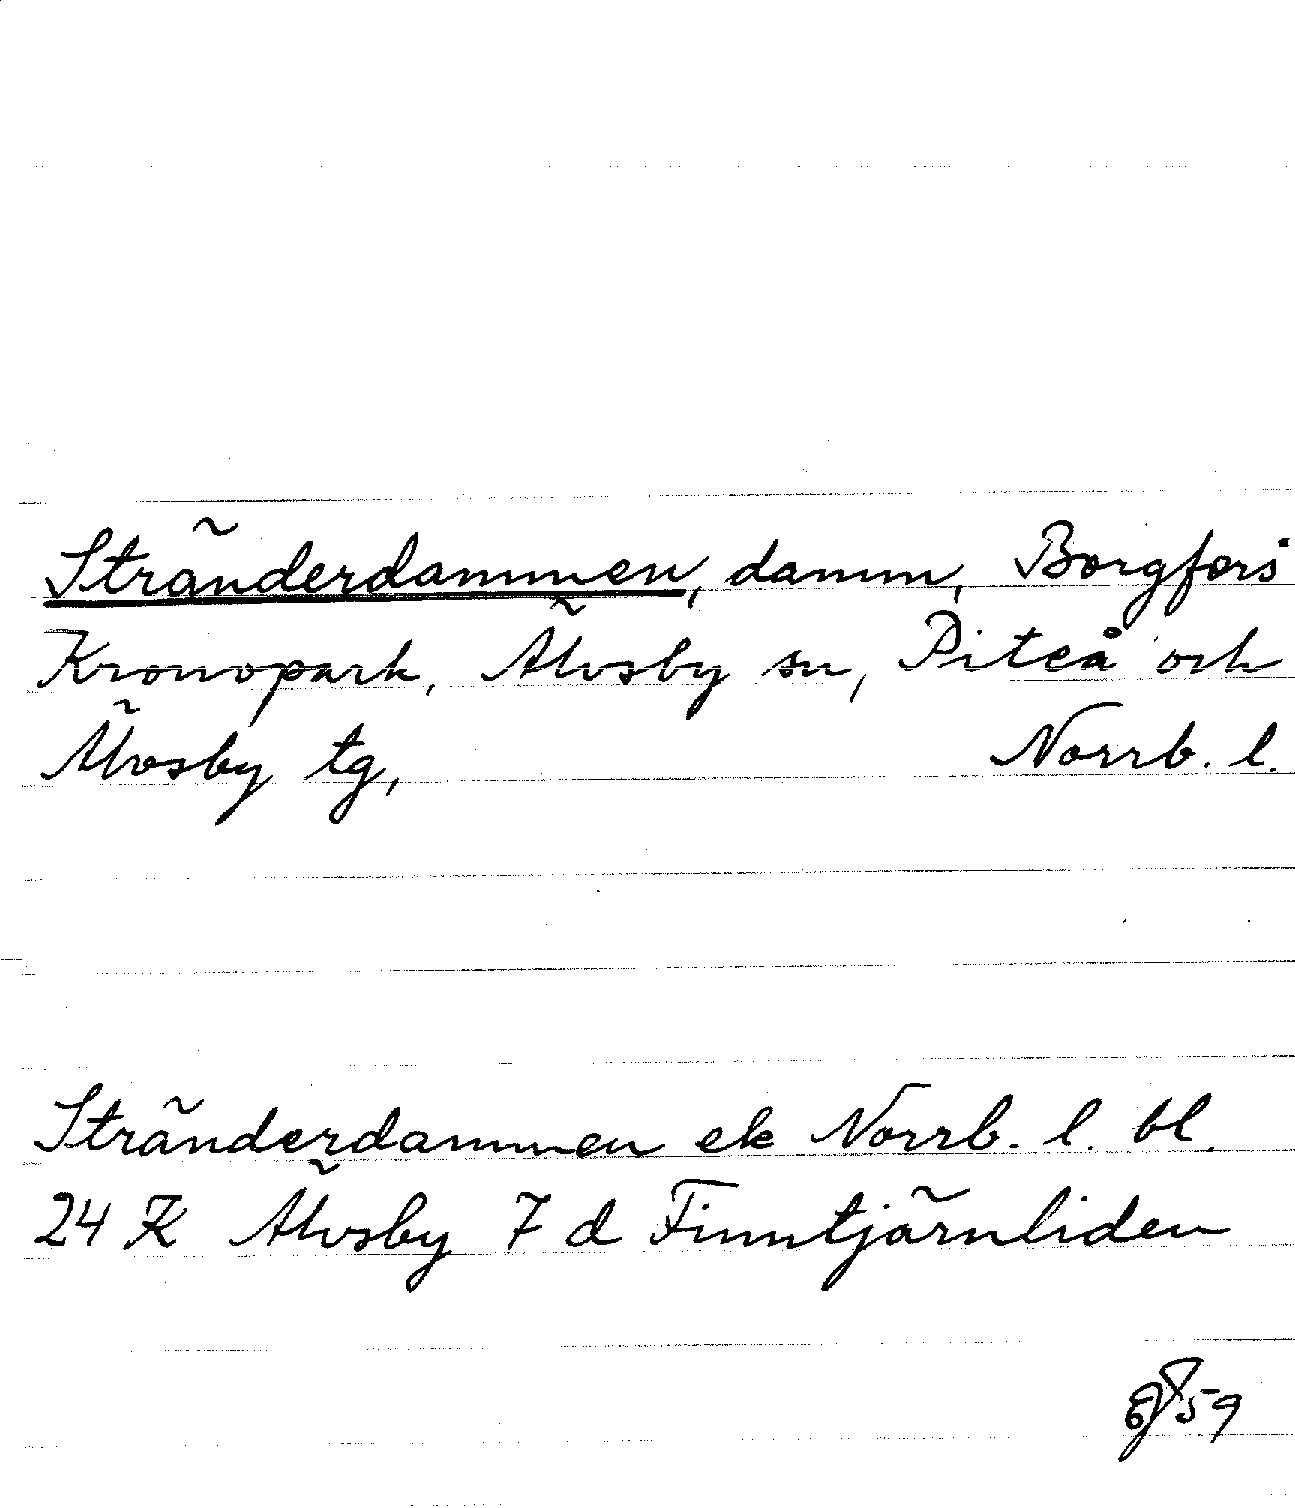 Stränderdammen, damm, Borgfors
Kronopark, Älvsby sn, Piteå och
Älvsby tg, Norrb. l.
Stränderdammen ek Norrb. l. bl.
24 K Älvsby 7 d Finntjärnliden
59